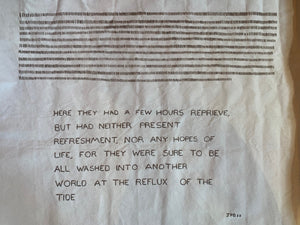 HERE THEY HAD A FEW HOURS REPRIEVE,
BUT HAD NEITHER PRESENT
REFRESHMENT, NOR ANY HOPES OF
LIFE, FOR THEY WERE SURE TO BE
ALL WASHED INTO ANOTHER
WORLD AT THE REFLUX OF THE
TIDE